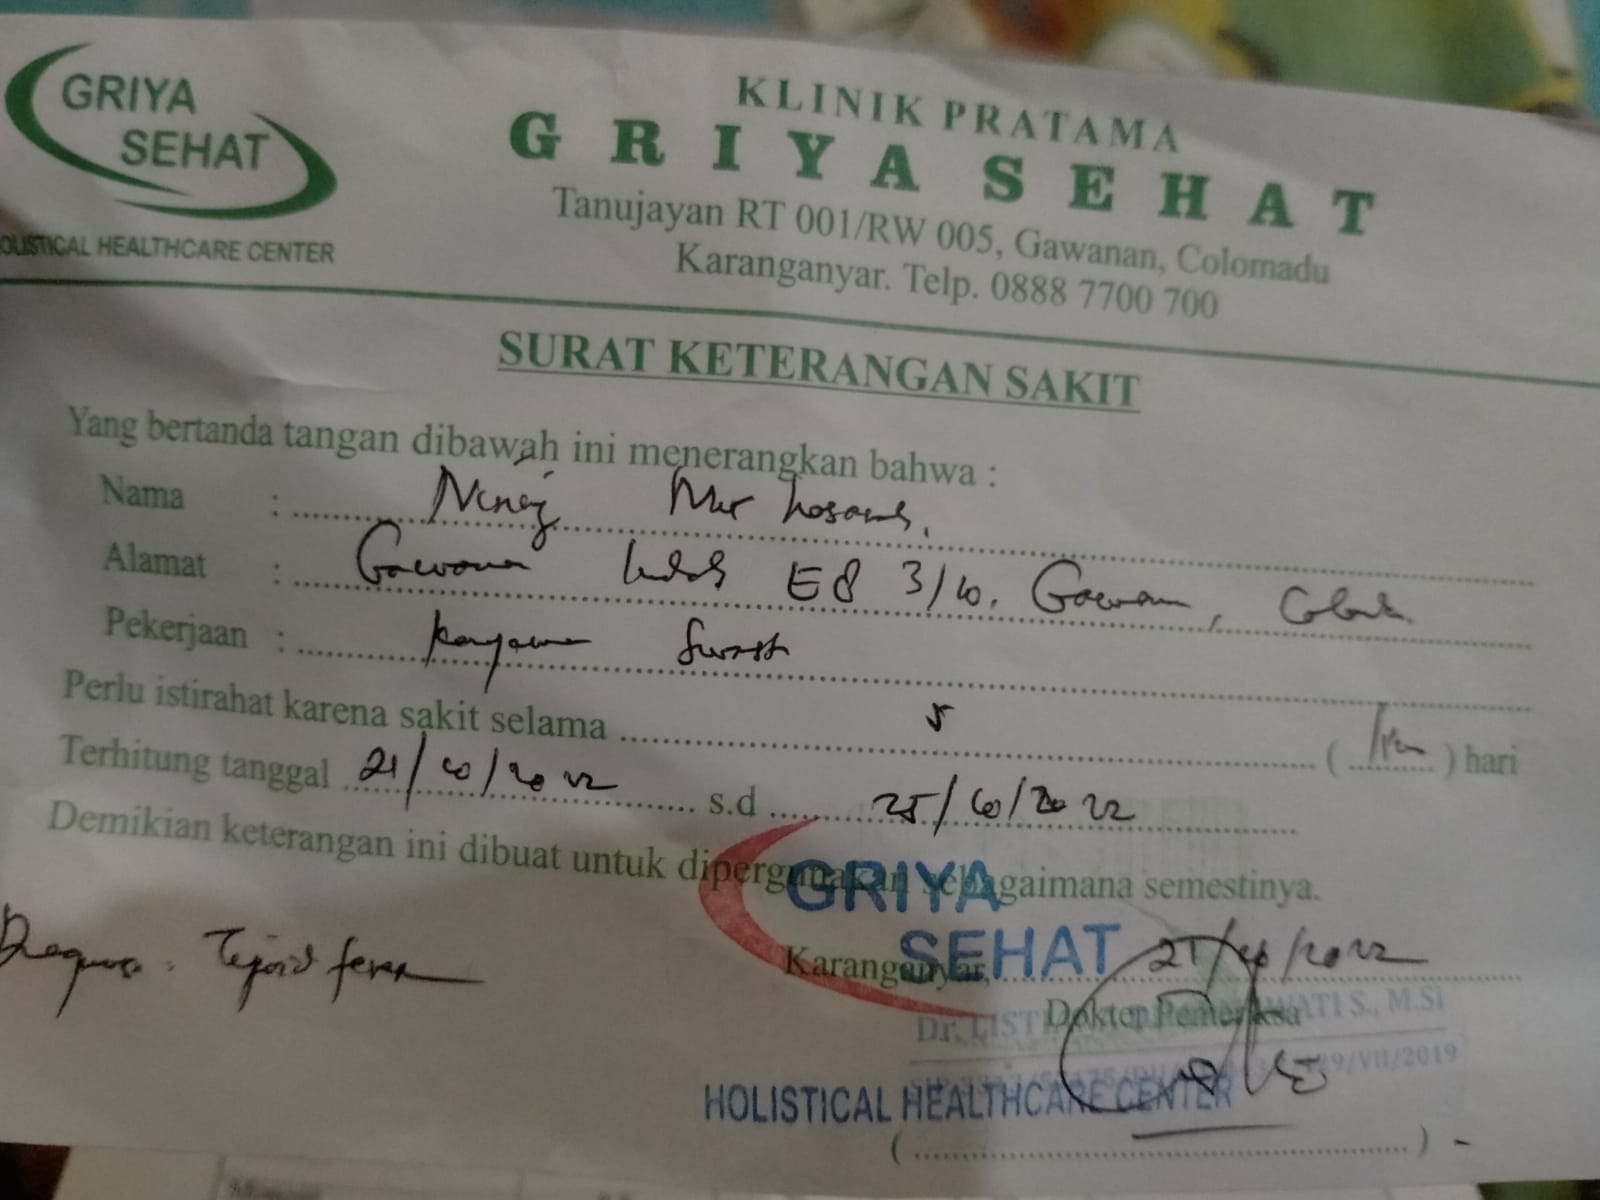 GRIYA
SEHAT
HOLISTICAL HEALTHCARE CENTER
KLINIK PRATAMA
GRIYA SEHAT
Tanujayan RT 001/RW 005, Gawanan, Colomadu
Karanganyar. Telp. 0888 7700 700
SURAT KETERANGAN SAKIT
Yang bertanda tangan dibawah ini menerangkan bahwa :
Nama : Nur
Alamat : Gawanan E8 3/10. Gawanan,
Pekerjaan : Karyawan Swasta
Perlu istirahat karena sakit selama 5 ( ) hari
Terhitung tanggal 21/10/2022 s.d 25/10/2022
Demikian keterangan ini dibuat untuk dipergunakan sebagaimana semestinya.
GRIYA
SEHAT
Karanganyar, 21/10/2022
Dokter Pemeriksa
Tifoid fever
M.Si
/VII/2019
HOLISTICAL HEALTHCARE CENTER